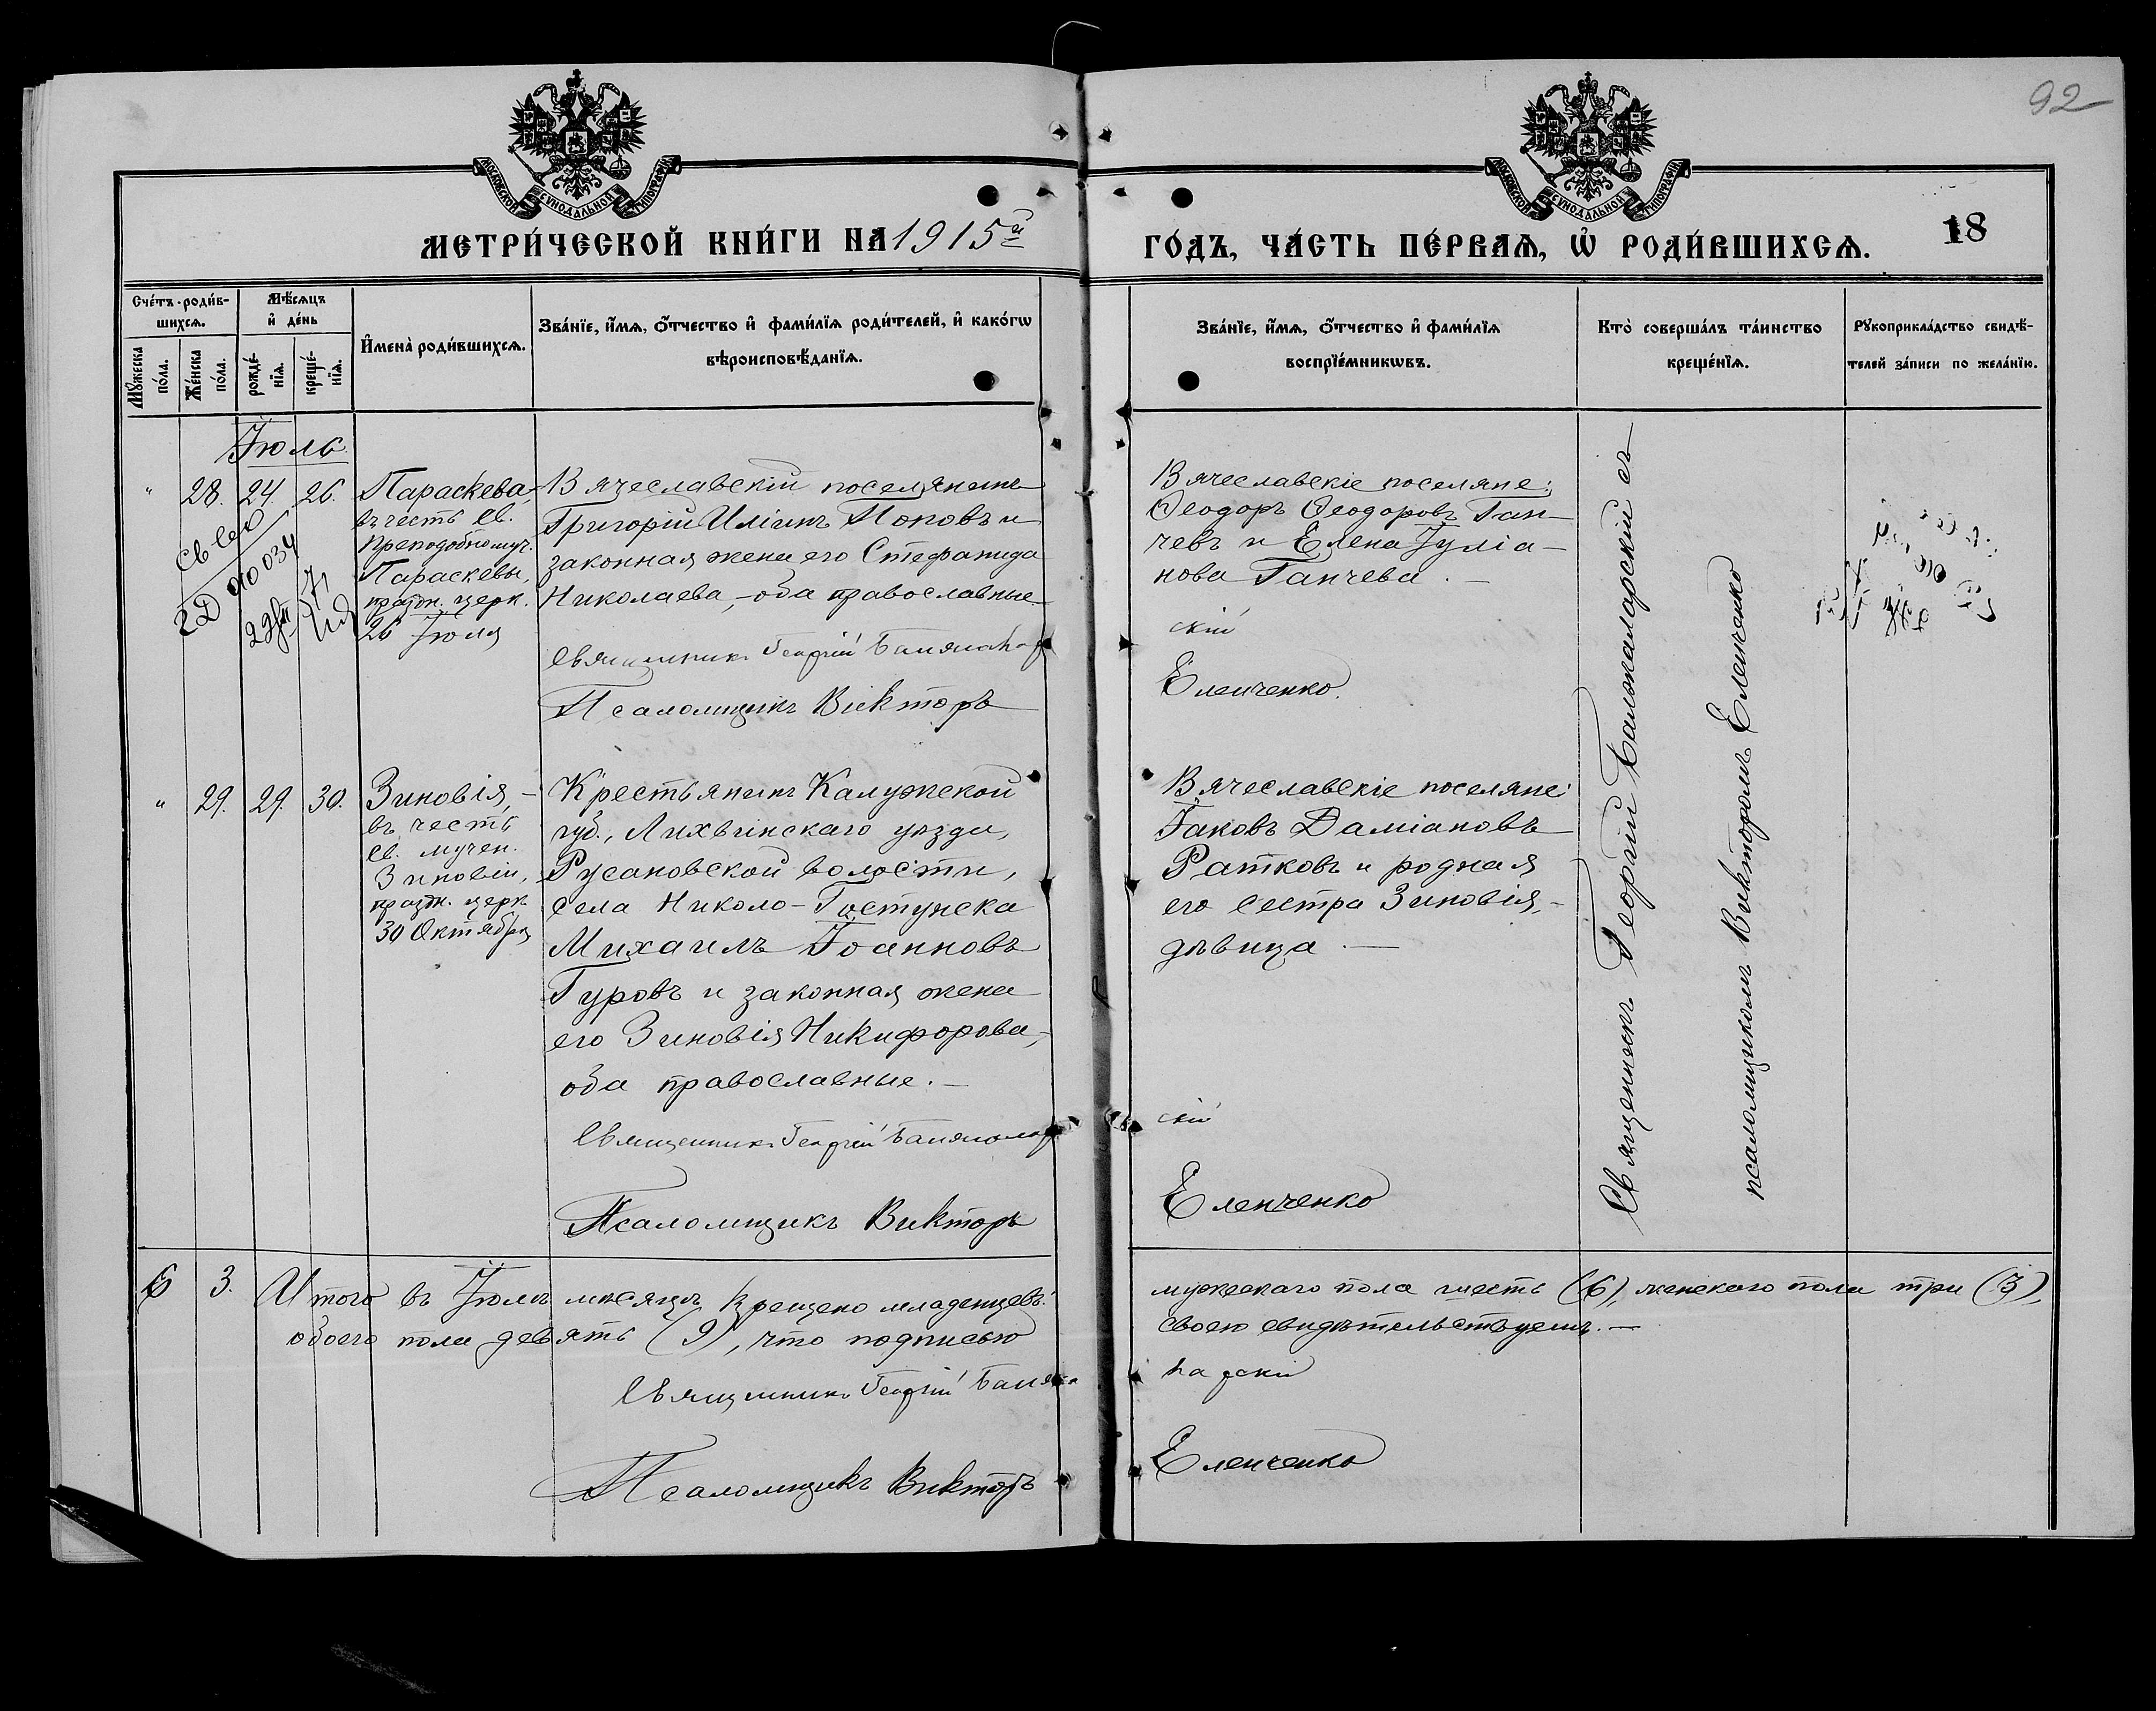 92
МОСКОВСКОЙ СѴНОДАЛЬНОЙ ТИПОГРАФІИ
МОСКОВСКОЙ СѴНОДАЛЬНОЙ ТИПОГРАФІИ
МЕТРИ́ЧЕСКОЙ КНИ́ГИ НА 1915й
ГО́ДЪ, ЧА́СТЬ ПЕ́РВАѦ, Ѡ҆ РОДИ́ВШИХСѦ.
18
Сче́тъ роди́в-
шихсѧ.
Мѣ́сѧцъ
и҆ де́нь
Мꙋ́жеска
по́ла.
Же́нска
по́ла.
рожде́-
нїѧ.
креще́-
нїѧ.
И҆мена̀ роди́вшихсѧ.
Зва́нїе, и҆́мѧ, ѻ҆́тчество и҆ фами́лїѧ роди́телей, и҆ како́гѡ
вѣроисповѣ́данїѧ.
Зва́нїе, и҆́мѧ, ѻ҆́тчество и҆ фами́лїѧ
воспрїе́мникѡвъ.
Кто̀ соверша́лъ та́инство
креще́нїѧ.
Рꙋкоприкла́дство свидѣ́-
телей за́писи по жела́нїю.
Іюль
" 28. 24. 26.
Параскева,
въ честь св.
преподобномуч.
Параскевы,
праздн. церк.
26 Іюля
Вячеславскій поселянинъ
Григорій Иліинъ Поповъ и
законная жена его Стефанида
Николаева, – оба православные.
Священникъ Георгій Балжалар
скій
Псаломщикъ Викторъ
Еленченко.
Вячеславскіе поселяне:
Ѳеодоръ Ѳеодоровъ Ган-
чевъ и Елена Іуліа-
нова Ганчева. –
Священникъ Георгій Балжаларскій съ
псаломщикомъ Викторомъ Еленченко
" 29. 29. 30.
Зиновія, –
въ честь
св. мучен.
Зиновіи,
праздн. церк.
30 Октября
Крестьянинъ Калужской
губ., Лихвинскаго уѣзда,
Русановской волости,
села Николо-Гостунска
Михаилъ Іоанновъ
Гуровъ и законная жена
его Зиновія Никифорова, –
оба православные. –
Священникъ Георгій Балжалар
скій
Псаломщикъ Викторъ
Еленченко
Вячеславскіе поселяне:
Іаковъ Даміановъ
Ратковъ и родная
его сестра Зиновія, –
дѣвица. –
6 3. Итого въ Іюлѣ мѣсяцѣ крещено младенцевъ:
мужескаго пола шесть (6), женскаго пола три (3),
обоего пола девять (9), что подписью
своею свидѣтельствуемъ. –
Священникъ Георгій Балжа
ларскій
Псаломщикъ Викторъ
Еленченко